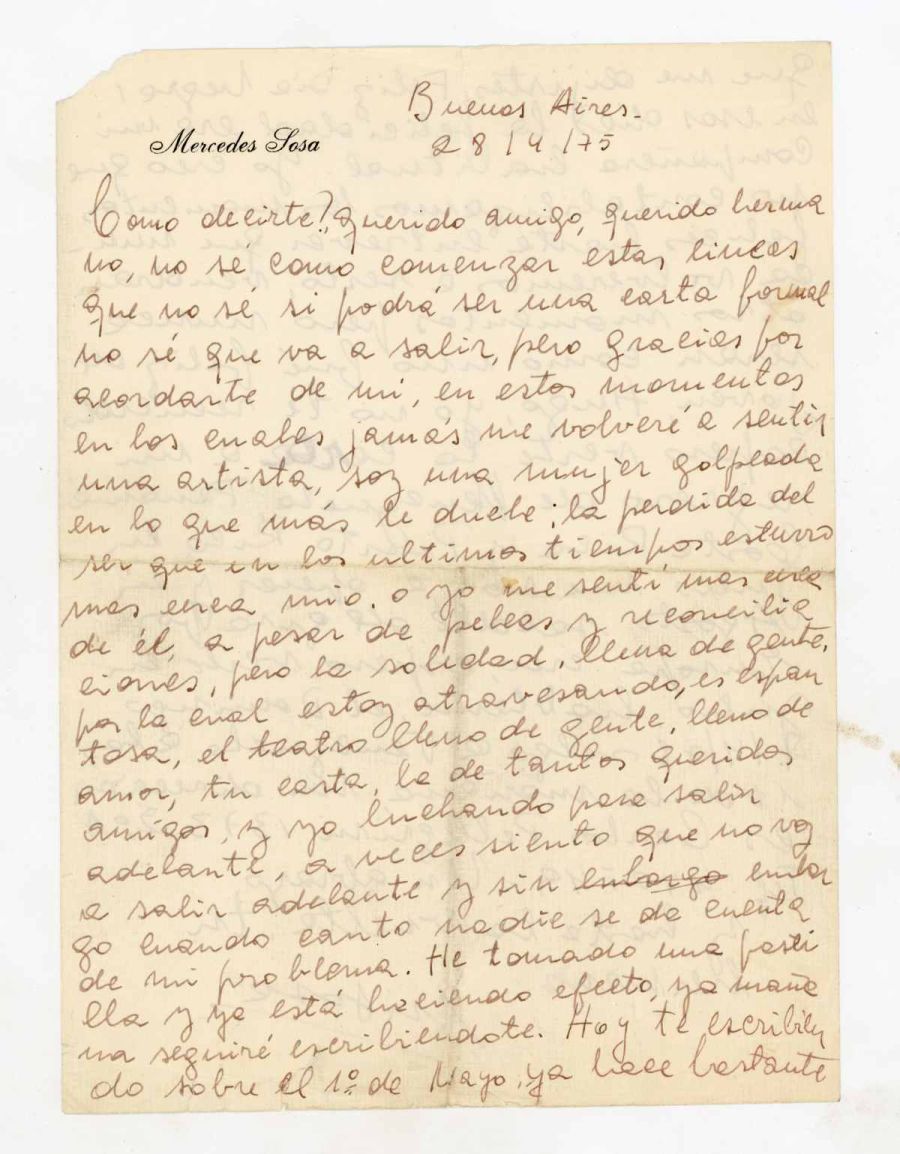 Buenos Aires.
Mercedes Sosa
28/4/75
Como decirte?, querido amigo, querido herma
no, no sé como comenzar estas lineas
que no sé si podrá ser una carta formal
no sé que va a salir, pero gracias por
acordarte de mi, en estos momentos
en los cuales jamás me volveré a sentir
una artista, soy una mujer golpeada
en lo que más le duele; la perdida del
ser que en los ultimos tiempos estuvo
mas cerca mio. o yo me sentí mas cerca
de él, a pesar de peleas y reconcilia
ciones, pero la soledad, llena de gente,
por la cual estoy atravesando, es espan
tosa, el teatro lleno de gente, lleno de
amor, tu carta, la de tantos queridos
amigos, y yo luchando para salir
adelante, a veces siento que no voy
a salir adelante y sin embargo embar
go cuando canto nadie se da cuenta
de mi problema. He tomado una pasti
lla y ya está haciendo efecto, ya maña
na seguiré escribiendote. Hoy te escribien
do sobre el 1º de Mayo, ya hace bastante